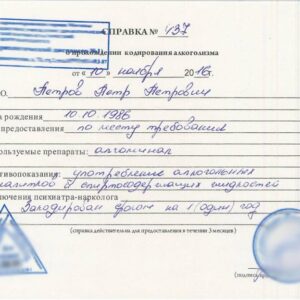 СПРАВКА № 437
о прохождении кодирования алкоголизма
от « 10 » ноября 2016г.
О. Петров Петр Петрович
а рождения 10.10.1986
предоставления по месту требования
ользуемые препараты: алгоминал
тивопоказания: употребление алкогольных
напитков и спиртосодержащих жидкостей
лючения психиатра-нарколога
Закодирован сроком на 1 (один) год
(справка действительна для предоставления в течении 3 месяцев)